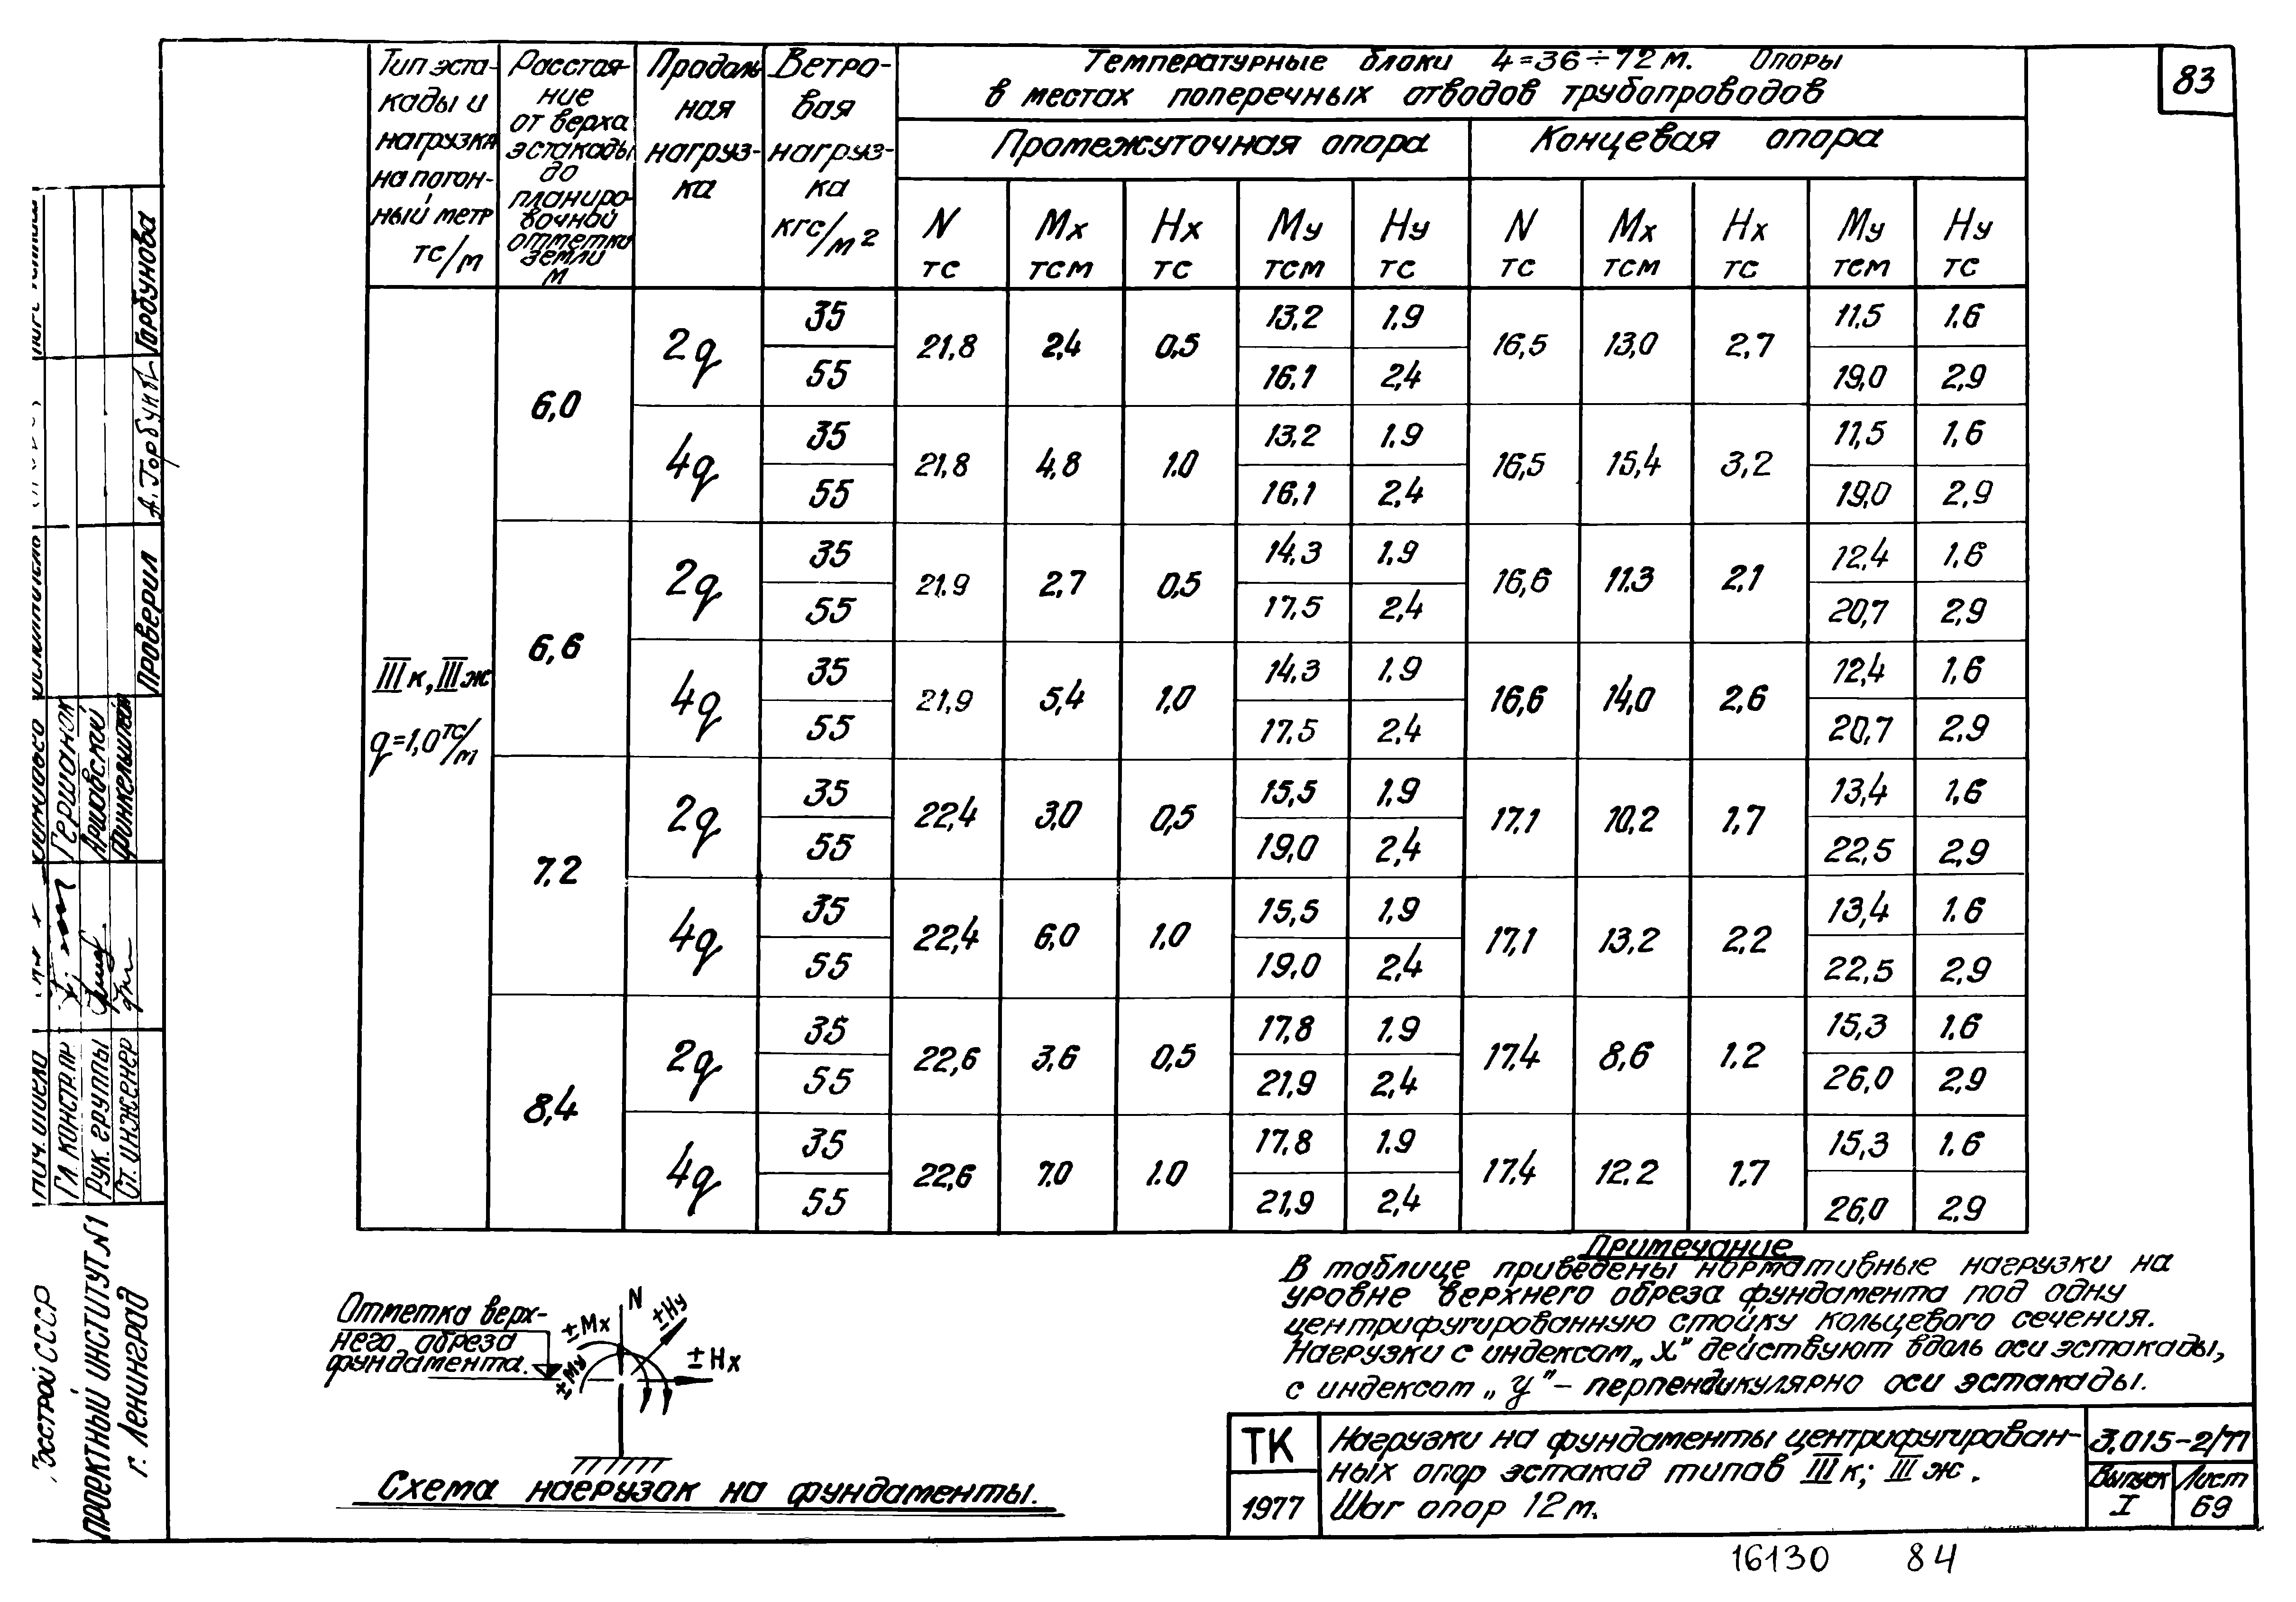 83
Температурные блоки 4=36÷72 м. Опоры
в местах поперечных отводов трубопроводов
Промежуточная опора Концевая опора
Тип эста-
кады и
нагрузка
на погон-
ный метр
тс/м
Расстоя-
ние
от верха
эстакады
до
планиро-
вочной
отметки
земли
м
Продоль
ная
нагруз-
ка
Ветро-
вая
нагруз-
ка
кгс/м²
N Mx Hx My Hy N Mx Hx My Hy
тс тсм тс тсм тс тс тсм тс тсм тс
IIIк, IIIж
q=1,0 тс/м
6,0
2q 35 21,8 2,4 0,5 13,2 1.9 16,5 13,0 2,7 11,5 1.6
55 16.1 2,4 19,0 2.9
4q 35 21,8 4,8 1.0 13,2 1.9 16,5 15,4 3,2 11,5 1.6
55 16,1 2.4 19,0 2,9
6,6
2q 35 21.9 2,7 0,5 14,3 1.9 16,6 11.3 2,1 12,4 1.6
55 17,5 2,4 20,7 2,9
4q 35 21,9 5,4 1,0 14,3 1.9 16,6 14,0 2,6 12,4 1.6
55 17,5 2.4 20,7 2.9
7,2
2q 35 22,4 3,0 0,5 15,5 1.9 17,1 10,2 1,7 13,4 1.6
55 19,0 2,4 22,5 2,9
4q 35 22,4 6,0 1.0 15,5 1,9 17,1 13,2 2.2 13,4 1.6
55 19,0 2,4 22,5 2,9
8,4
2q 35 22,6 3,6 0,5 17,8 1.9 17,4 8,6 1.2 15,3 1.6
55 21,9 2,4 26,0 2,9
4q 35 22,6 7.0 1.0 17.8 1.9 17,4 12.2 1.7 15,3 1.6
55 21,9 2,4 26,0 2.9
Примечание
В таблице приведены нормативные нагрузки на
уровне верхнего обреза фундамента под одну
центрифугированную стойку кольцевого сечения.
Нагрузки с индексом „X" действуют вдоль оси эстакады,
с индексом „y" – перпендикулярно оси эстакады.
Отметка верх-
него обреза
фундамента.
N
±Hy
±Mx
±Hx
±My
Схема нагрузок на фундаменты.
ТК
1977
Нагрузки на фундаменты центрифугирован-
ных опор эстакад типов IIIк; IIIж.
Шаг опор 12 м.
3.015-2/77
Выпуск
I
Лист
69
16130 84
Горбунова
А. Горбун
Проверил
Гершанок
Аршавский
Финкельштейн
Гл. констр. пр
Рук. группы
Ст. инженер
Госстрой СССР
ПРОЕКТНЫЙ ИНСТИТУТ №1
г. Ленинград